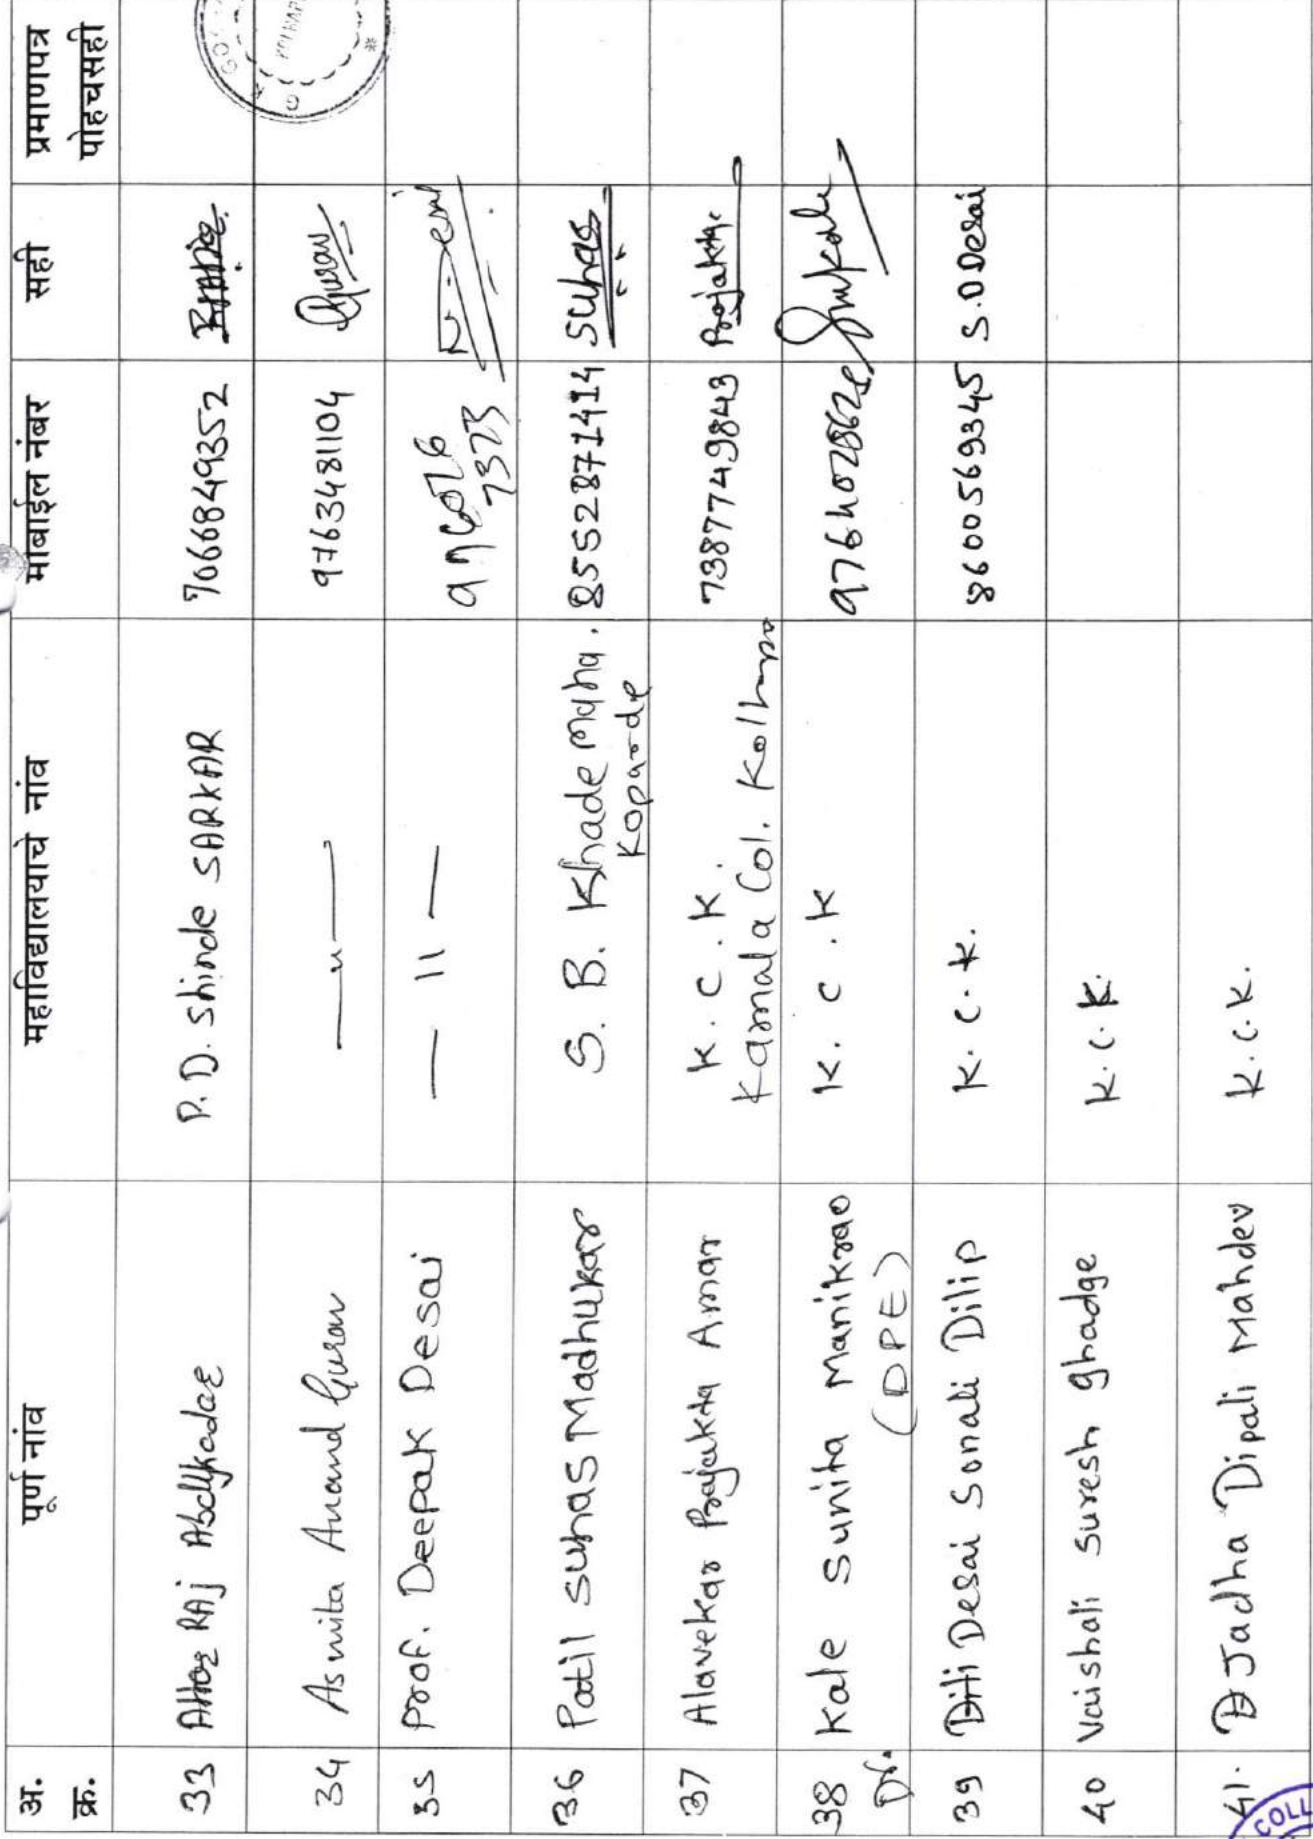 अ. क्र. पूर्ण नांव महाविद्यालयाचे नांव मोबाईल नंबर सही प्रमाणपत्र पोहचसही
33 RAJ P.D. Shinde SARKAR 7066849352
34 Asmita Anand Gurav —〃— 9763481104 Gurav
35 Prof. Deepak Desai — 11 — 7373
36 Patil Suhas Madhukar S. B. Khade Maha. Koparde 8552871414 Suhas
37 Alavekar Prajakta Amar K. C. K Kamala Col. Kolhapur 7387749843 Prajakta
38 Dr. Kale Sunita Manikrao (DPE) K. C. K
39 Desai Sonali Dilip K. C. K. 8600569345 S.D Desai
40 Vaishali Suresh Ghadge K.C.K.
41. Jadha Dipali Mahdev K.C.K.
COLL